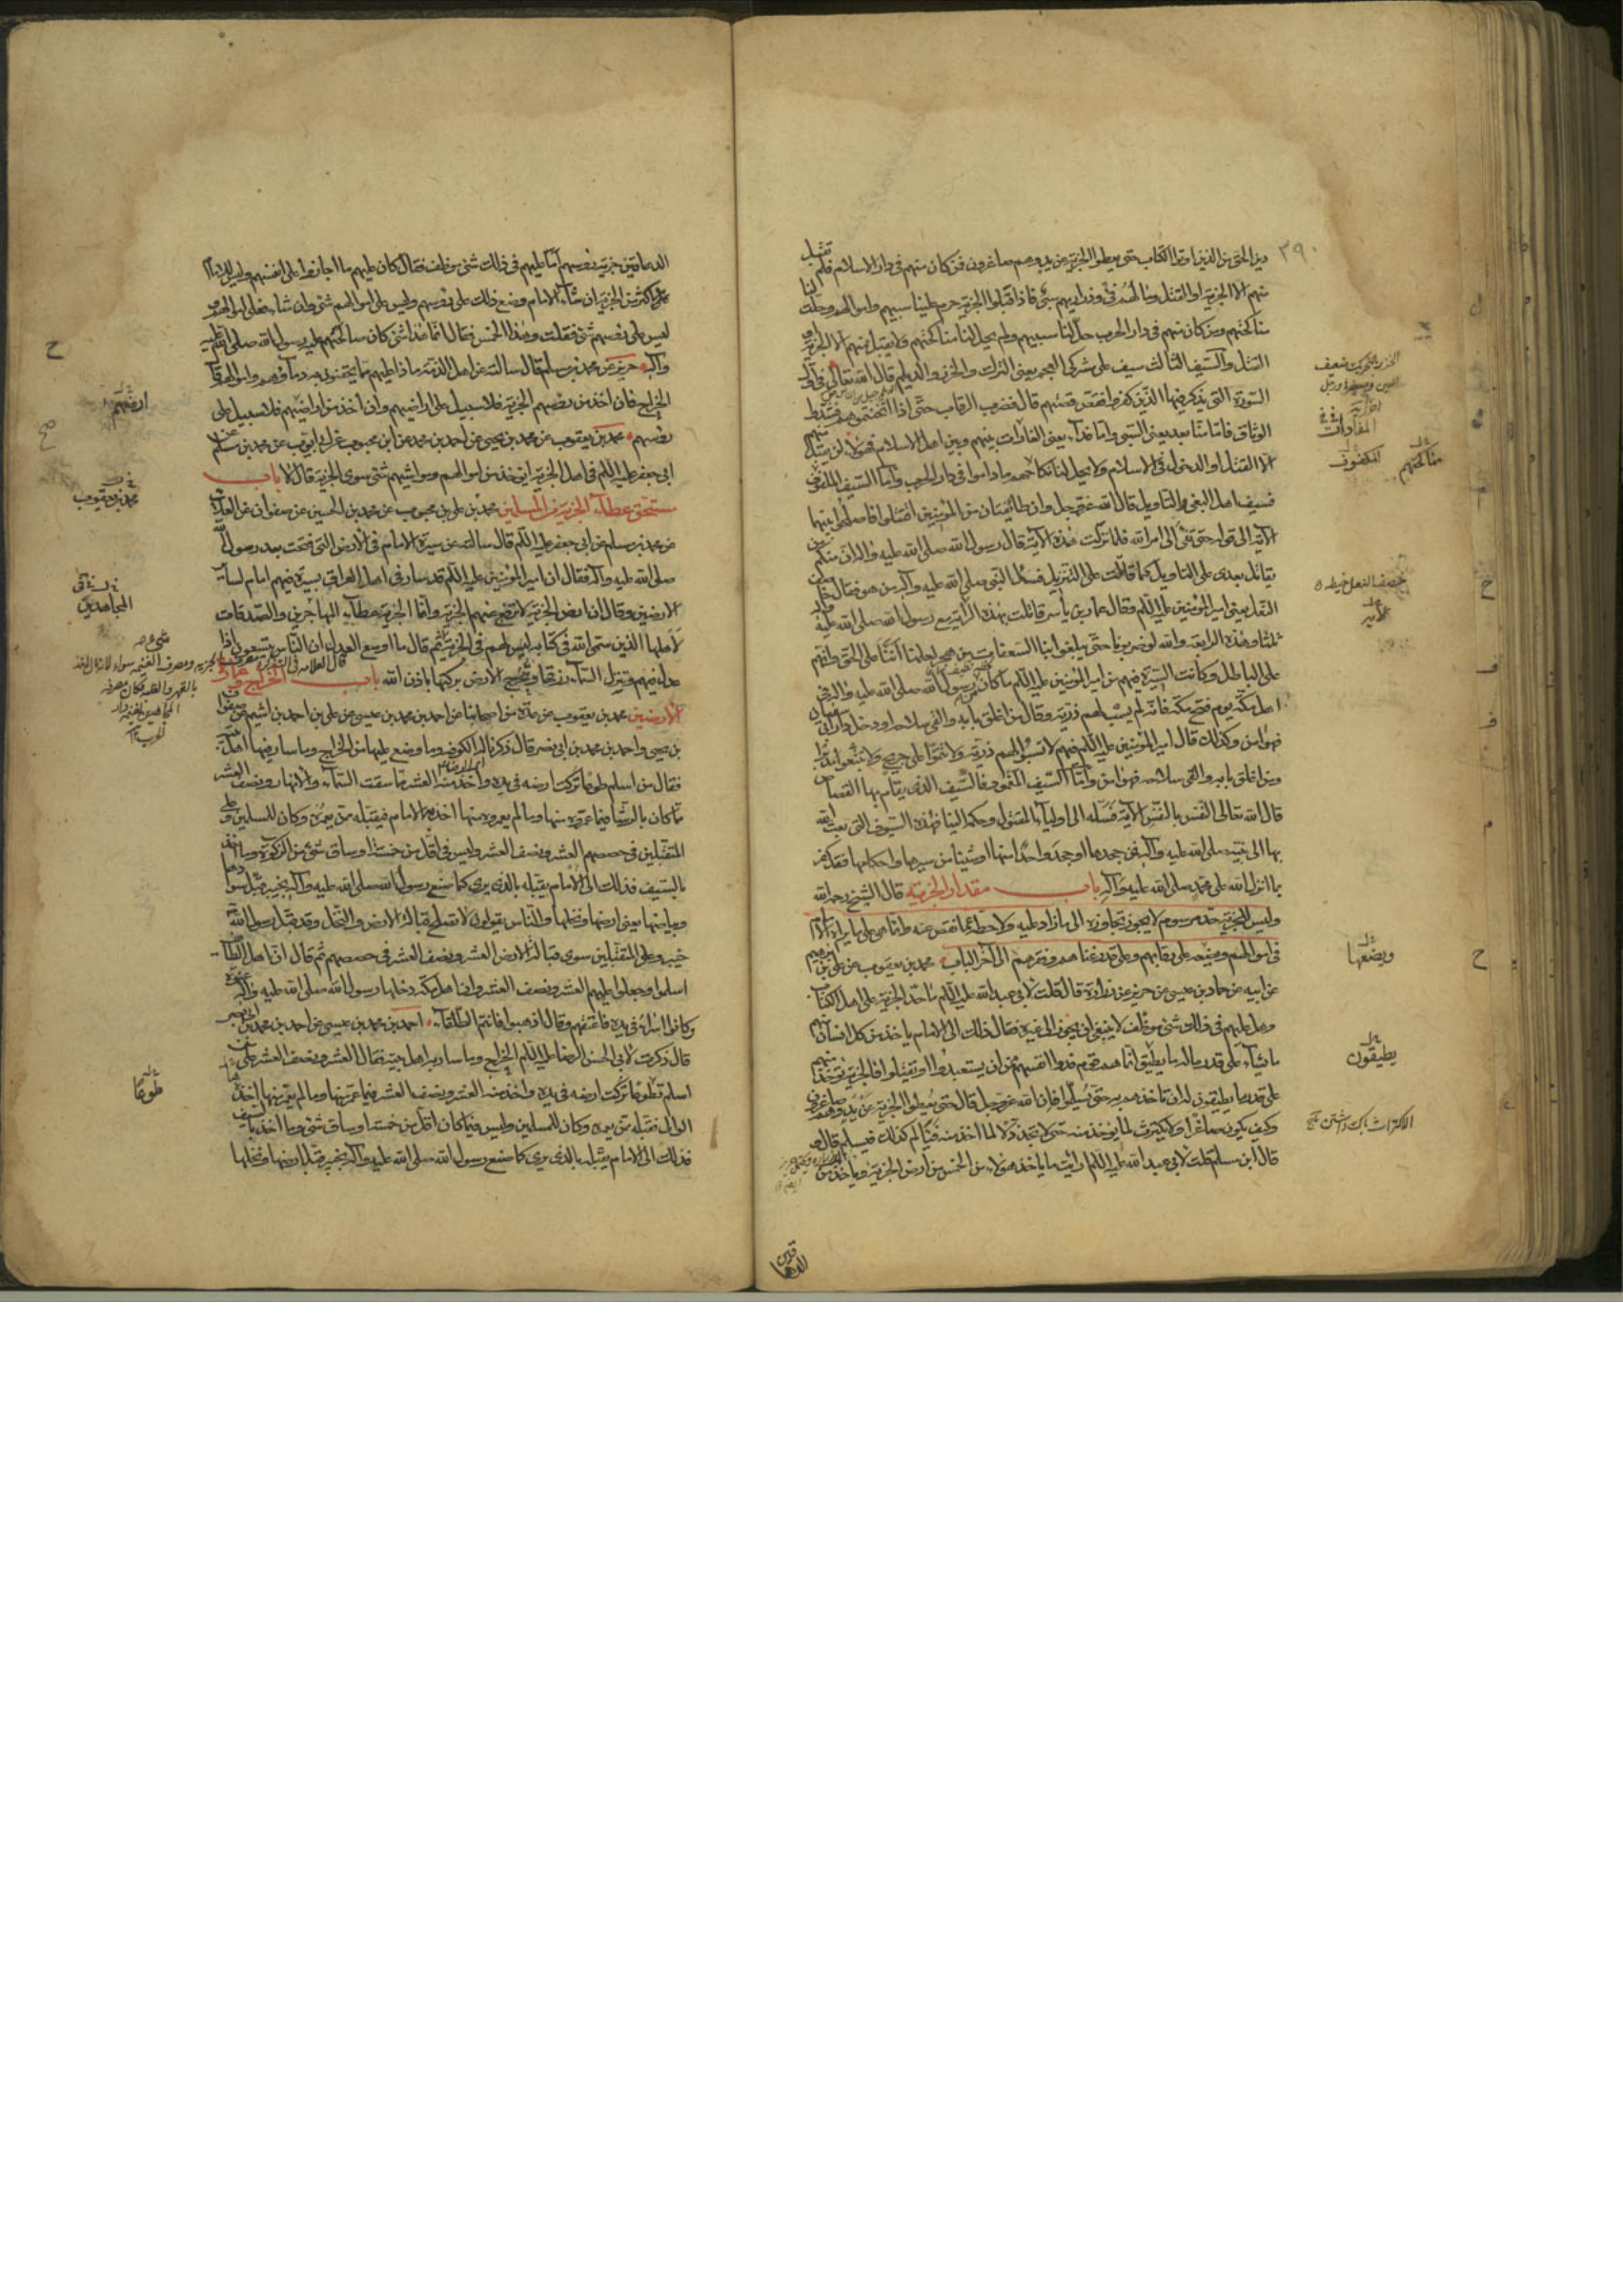 ٣٩٠
دين الحق من الذين اوتوا الكتاب حتى يعطوا الجزية عن يد وهم صاغرون فمن كان منهم فى دار الاسلام فلم تقبل
منهم الا الجزية او القتل وما لهم فى وذراريهم سبى فاذا قبلوا الجزية حرم علينا سبيهم واموالهم وحلت لنا
مناكحتهم ومن كان منهم فى دار الحرب حل لنا سبيهم ولم يحل لنا مناكحتهم ولا يقبل منهم الا الجزية او
القتل والسيف الثالث سيف على مشركى العجم يعنى الترك والخزر والديلم قال الله تعالى فى اول
السورة التى يذكر فيها الذين كفروا فقص قصتهم قال فضرب الرقاب حتى اذا اثخنتموهم فشدوا
الوثاق فاما منا بعد يعنى السبى واما فداء يعنى الفادات بينهم وبين اهل الاسلام فهؤلاء لن يقبل منهم
الا القتل او الدخول فى الاسلام ولا يحل لنا نكاحهم ماداموا فى دار الحرب واما السيف الملفوف
فسيف اهل البغى والتاويل قال الله عز وجل وان طائفتان من المؤمنين اقتتلوا فاصلحوا بينهما
الآية الى قوله حتى تفئ الى امر الله فلما نزلت هذه الآية قال رسول الله صلى الله عليه وآله ان منكم من
يقاتل بعدى على التاويل كما قاتلت على التنزيل فسئل النبى صلى الله عليه وآله من هو فقال خاصف
النعل يعنى امير المؤمنين عليه السلم وقال عمار بن ياسر قاتلت بهذه الراية مع رسول الله صلى الله عليه وآله
ثلثا وهذه الرابعة والله لو ضربونا حتى يبلغوا بنا السعفات من هجر لعلمنا اننا على الحق وانهم
على الباطل وكانت السيرة فيهم من امير المؤمنين عليه السلم ما كان من رسول الله صلى الله عليه وآله فى
اهل مكة يوم فتح مكة فانه لم يسب لهم ذرية وقال من اغلق بابه والقى سلاحه او دخل دار ابى سفيان
فهو امن وكذلك قال امير المؤمنين عليه السلم فيهم لا تسبوا لهم ذرية ولا تتموا على جريح ولا تتبعوا مدبرا
ومن اغلق بابه والقى سلاحه فهو امن واما السيف المغمود فالسيف الذى يقام بها القصاص
قال الله تعالى النفس بالنفس الآية فسله الى اولياء المقتول وحكمه الينا فهذه السيوف التى بعث الله
بها الى نبيه صلى الله عليه وآله فمن جحدها او جحد واحدا منها او شيئا من سيرها واحكامها فقد كفر
بما انزل الله على محمد صلى الله عليه وآله باب مقدار الجزية قال الشيخ رحمه الله
وليس للجزية حد مرسوم لا يجوز تجاوزه الى ما زاد عليه ولا حطه عما نقص عنه وانما هى على ما يراه الامام
فى اموالهم ويضعه على رقابهم وعلى قدر غناهم وفقرهم الى آخر الباب محمد بن يعقوب عن على بن ابرهيم
عن ابيه عن حماد بن عيسى عن حريز عن زرارة قال قلت لابى عبد الله عليه السلم ما حد الجزية على اهل الكتاب
وهل عليهم فى ذلك شئ موظف لا ينبغى ان يجوز الى غيره فقال ذلك الى الامام ياخذ من كل انسان منهم
ما شاء على قدر ماله ما يطيق انما هم قوم فدوا انفسهم من ان يستعبدوا او يقتلوا فالجزية تؤخذ منهم
على قدر ما يطيقون له ان تاخذهم به حتى يسلموا فان الله عز وجل قال حتى يعطوا الجزية عن يد وهم صاغرون
وكيف يكون صاغرا ولا يكترث لما يؤخذ منه حتى لا يجد ذلا لما اخذ منه فيألم لذلك فيسلم قال و
قال ابن مسلم قلت لابى عبد الله عليه السلم ارأيت ما ياخذ هؤلاء من الخمس من ارض الجزية وياخذ من
الدهاقين
المفادات
مناكحتهم
خصف النعل خيطه
ويضعها
يطيقون
الدهاقين جزية رؤسهم اما عليهم فى ذلك شئ موظف فقال كان عليهم ما اجازوا على انفسهم وليس للامام
اكثر من الجزية ان شاء الامام وضع ذلك على رؤسهم وليس على اموالهم شئ وان شاء فعلى اموالهم و
ليس على رؤسهم شئ فقلت وهذا الخمس فقال انما هذا شئ كان صالحهم عليه رسول الله صلى الله عليه
وآله حريز عن محمد بن مسلم قال سالته عن اهل الذمة ماذا عليهم مما يحقنون به دماءهم واموالهم قال
الخراج فان اخذ من رؤسهم الجزية فلا سبيل على اراضيهم وان اخذ من اراضيهم فلا سبيل على
رؤسهم محمد بن يعقوب عن محمد بن يحيى عن احمد بن محمد عن ابن محبوب عن ابى ايوب عن محمد بن مسلم عن
ابى جعفر عليه السلم فى اهل الجزية ايؤخذ من اموالهم ومواشيهم شئ سوى الجزية قال لا باب
مستحق عطاء الجزية من المسلمين محمد بن على بن محبوب عن محمد بن الحسين عن صفوان عن العلاء
عن محمد بن مسلم عن ابى جعفر عليه السلم قال سالته عن سيرة الامام فى الارض التى فتحت بعد رسول الله
صلى الله عليه وآله فقال ان امير المؤمنين عليه السلم قد سار فى اهل العراق بسيرة فيهم امام لسائر
الارضين وقال ان ارض الجزية لا ترفع عنهم الجزية وانما الجزية عطاء المهاجرين والصدقات
لاهلها الذين سمى الله فى كتابه ليس لهم فى الجزية شئ ثم قال ما اوسع العدل ان الناس يتسعون اذا
عدل فيهم وتنزل السماء رزقها وتخرج الارض بركتها باذن الله باب الخراج وعمارة
الارضين محمد بن يعقوب عن عدة من اصحابنا عن احمد بن محمد بن عيسى عن على بن احمد بن اشيم عن صفوان
بن يحيى واحمد بن محمد بن ابى نصر قال ذكرنا له الكوفة وما وضع عليها من الخراج وما سار فيها اهل بيته
فقال من اسلم طوعا تركت ارضه فى يده واخذ منه العشر مما سقت السماء والانهار ونصف العشر
مما كان بالرشا فيما عمروه منها وما لم يعمروه منها اخذه الامام فيقبله ممن يعمره وكان للمسلمين وعلى
المتقبلين فى حصصهم العشر ونصف العشر وليس فى اقل من خمسة اوساق شئ من الزكوة وما اخذ
بالسيف فذلك الى الامام يقبله بالذى يرى كما صنع رسول الله صلى الله عليه وآله بخيبر قبل سوادها
وبياضها يعنى ارضها ونخلها والناس يقولون لا تصلح قبالة الارض والنخل وقد قبل رسول الله
خيبر وعلى المتقبلين سوى قبالة الارض العشر ونصف العشر فى حصصهم ثم قال ان اهل الطائف
اسلموا وجعلوا عليهم العشر ونصف العشر وان اهل مكة دخلها رسول الله صلى الله عليه وآله عنوة
وكانوا اسراء فى يده فاعتقهم وقال اذهبوا فانتم الطلقاء احمد بن محمد بن عيسى عن احمد بن محمد بن ابى نصر
قال ذكرت لابى الحسن الرضا عليه السلم الخراج وما سار به اهل بيته فقال العشر ونصف العشر على من
اسلم تطوعا تركت ارضه فى يده واخذ منه العشر ونصف العشر فيما عمر منها وما لم يعمر منها اخذه
الوالى فقبله ممن يعمره وكان للمسلمين وليس فيما كان اقل من خمسة اوساق شئ وما اخذ بالسيف
فذلك الى الامام يقبله بالذى يرى كما صنع رسول الله صلى الله عليه وآله بخيبر قبل ارضها ونخلها
ارضهم
محمد بن يعقوب
المجاهدين
طوعا